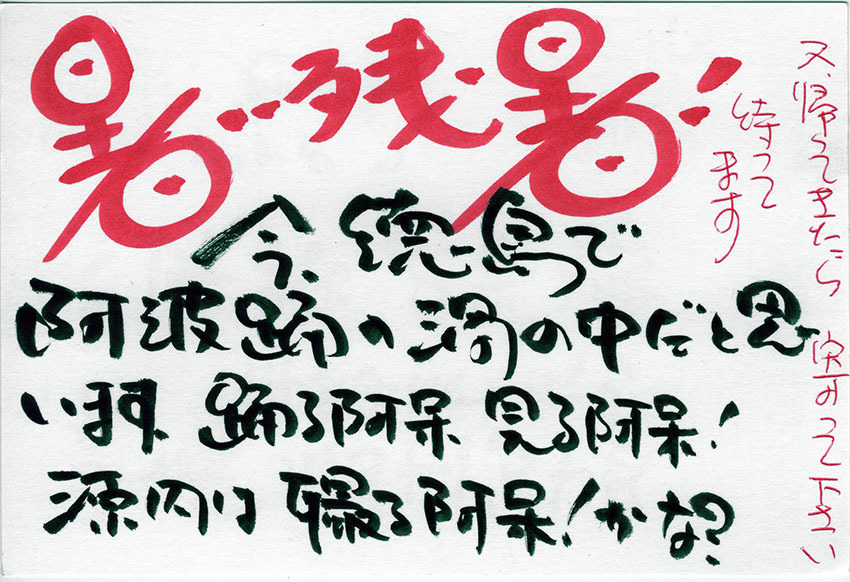 暑‥残暑!
今、徳島で
阿波踊り渦の中だと思
います、踊る阿呆 見る阿呆!
源内は 撮る阿呆!かな?
又、帰ってきたら 寄って下さい
待って
ます